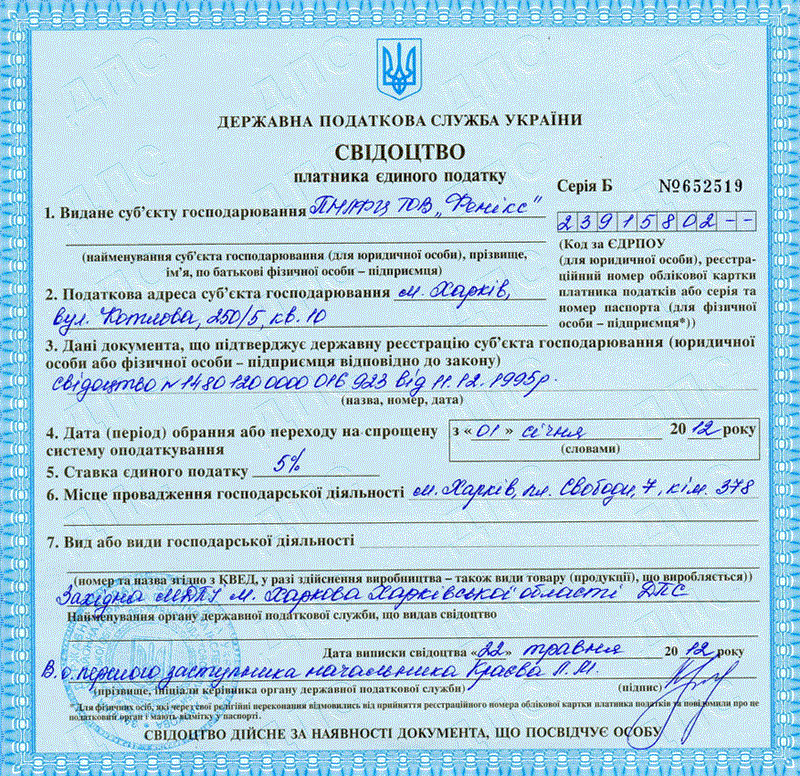 ДЕРЖАВНА ПОДАТКОВА СЛУЖБА УКРАЇНИ
СВІДОЦТВО
платника єдиного податку
Серія Б №652519
1. Видане суб’єкту господарювання ПНАРЦ ТОВ „Фенікс“
23915802--
(найменування суб’єкта господарювання (для юридичної особи), прізвище,
ім’я, по батькові фізичної особи – підприємця)
(Код за ЄДРПОУ
(для юридичної особи), реєстра-
ційний номер облікової картки
платника податків або серія та
номер паспорта (для фізичної
особи – підприємця*))
2. Податкова адреса суб’єкта господарювання м. Харків,
вул. Котлова, 250/5, кв. 10
3. Дані документа, що підтверджує державну реєстрацію суб’єкта господарювання (юридичної
особи або фізичної особи – підприємця відповідно до закону)
Свідоцтво №1480 120 0000 016 923 від 11.12.1995р.
(назва, номер, дата)
4. Дата (період) обрання або переходу на спрощену
систему оподаткування
з «01» січня 2012 року
(словами)
5. Ставка єдиного податку 5%
6. Місце провадження господарської діяльності м. Харків, пл. Свободи, 7, кім. 378
7. Вид або види господарської діяльності
(номер та назва згідно з КВЕД, у разі здійснення виробництва – також види товару (продукції), що виробляється))
Західна МДПІ м. Харкова Харківської області ДПС
Найменування органу державної податкової служби, що видав свідоцтво
Дата виписки свідоцтва «22» травня 2012 року
В.о. першого заступника начальника Краєва Л.М.
(прізвище, ініціали керівника органу державної податкової служби) (підпис)
*Для фізичних осіб, які через свої релігійні переконання відмовились від прийняття реєстраційного номера облікової картки платника податків та повідомили про це
податковий орган і мають відмітку у паспорті.
СВІДОЦТВО ДІЙСНЕ ЗА НАЯВНОСТІ ДОКУМЕНТА, ЩО ПОСВІДЧУЄ ОСОБУ